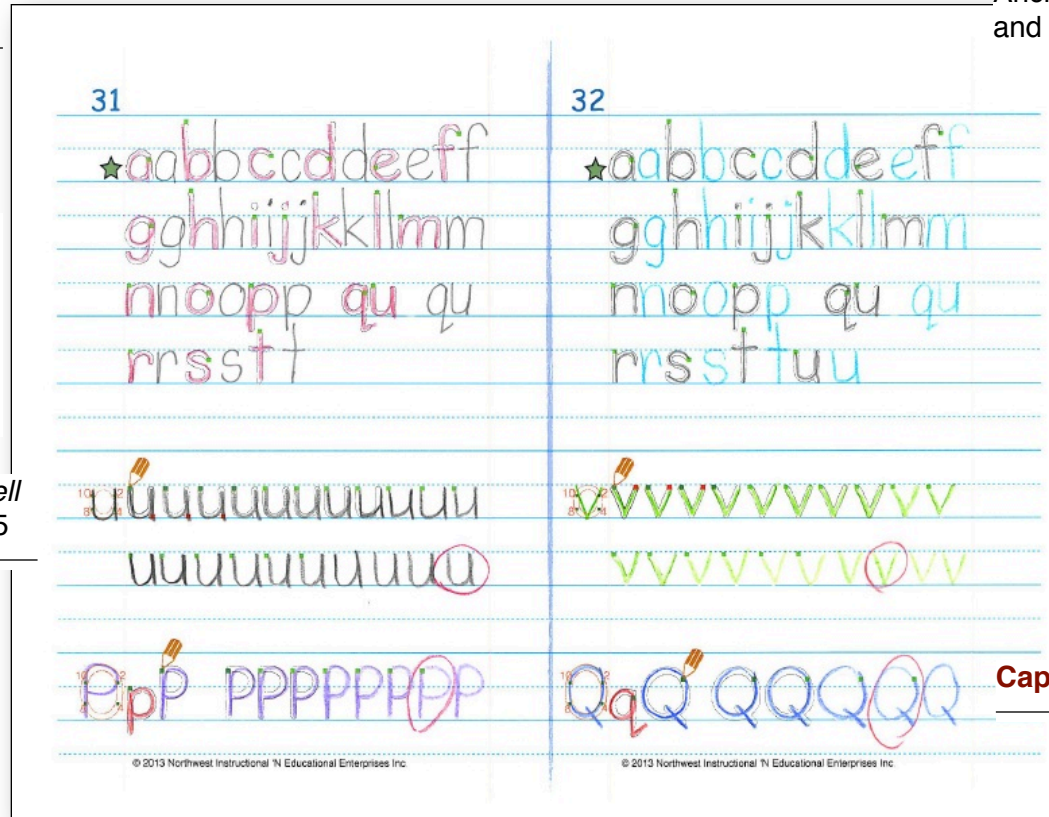 and
31
aabbccddeeff
gghhiijjkkllmm
nnoopp qu qu
rrsstt
10 2
8 4
u uuuuuuuuuuu
uuuuuuuuuu
10 2
8 4
PpP PPPPPPPP
© 2013 Northwest Instructional 'N Educational Enterprises Inc
32
aabbccddeeff
gghhiijjkkllmm
nnoopp qu qu
rrssttuu
10 2
8 4
v vvvvvvvvvv
vvvvvvvvvv
10 2
8 4
QqQ QQQQQ
© 2013 Northwest Instructional 'N Educational Enterprises Inc
ell
5
Cap